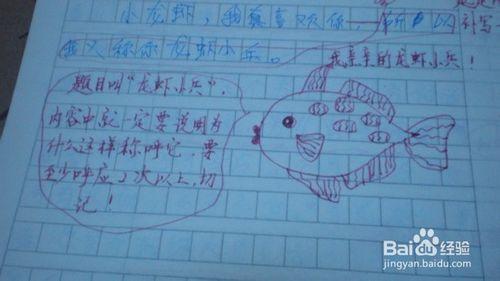 小龙虾，我喜欢你，
补写一
我又称你龙虾小兵。
我亲亲的龙虾小兵！
题目叫“龙虾小兵”，
内容中就一定要说明为
什么这样称呼它，要
至少呼应2次以上，切
记！
Baidu经验
jingyan.baidu.com